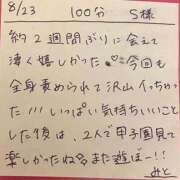 8/23 100分 S様
約2週間ぶりに会えて
凄く嬉しかった♡今回も
全身責められて沢山イっちゃ
った!!!いっぱい気持ちいいこと
した後は、2人で甲子園見て
楽しかったね♬また遊ぼー!!
みと